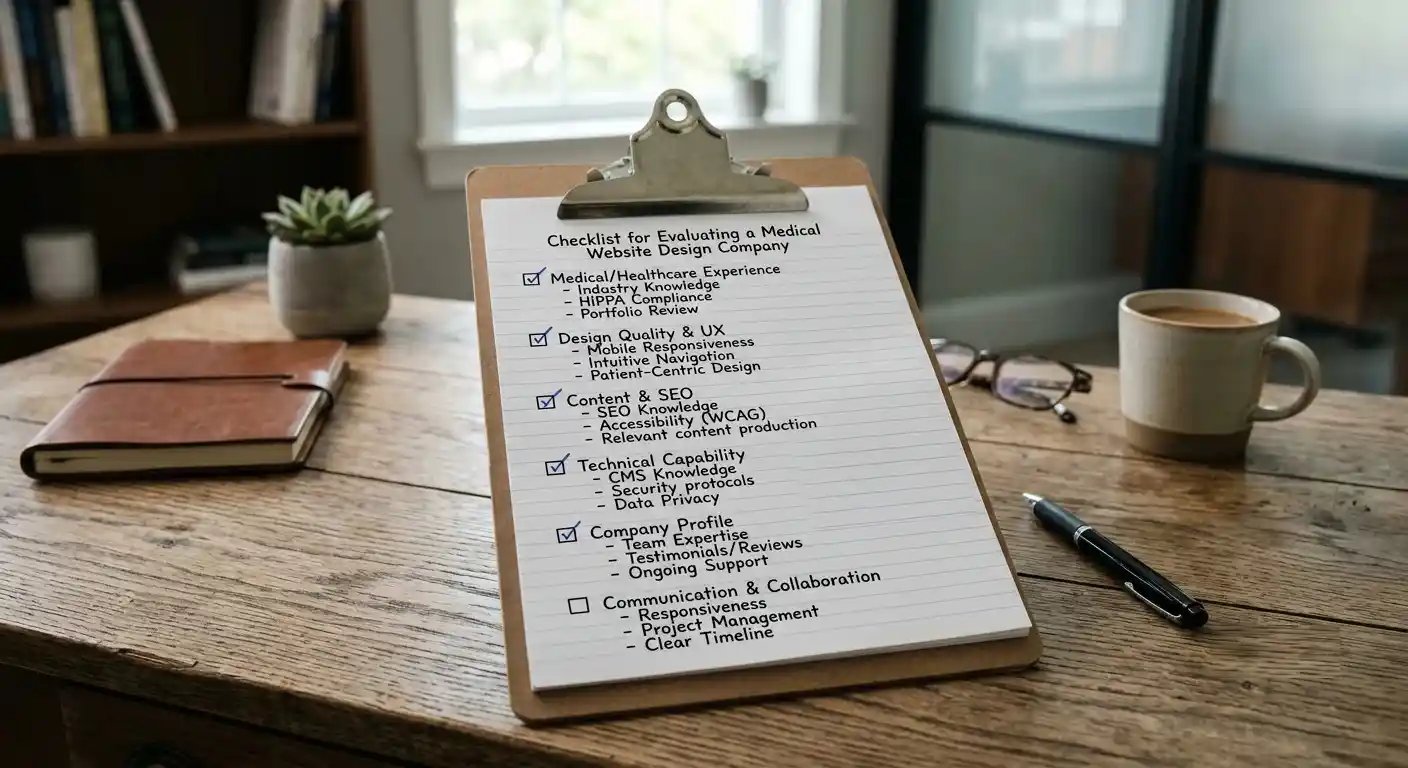 Checklist for Evaluating a Medical
Website Design Company
Medical/Healthcare Experience
- Industry Knowledge
- HIPPA Compliance
- Portfolio Review
Design Quality & UX
- Mobile Responsiveness
- Intuitive Navigation
- Patient-Centric Design
Content & SEO
- SEO Knowledge
- Accessibility (WCAG)
- Relevant content production
Technical Capability
- CMS Knowledge
- Security protocols
- Data Privacy
Company Profile
- Team Expertise
- Testimonials/Reviews
- Ongoing Support
Communication & Collaboration
- Responsiveness
- Project Management
- Clear Timeline